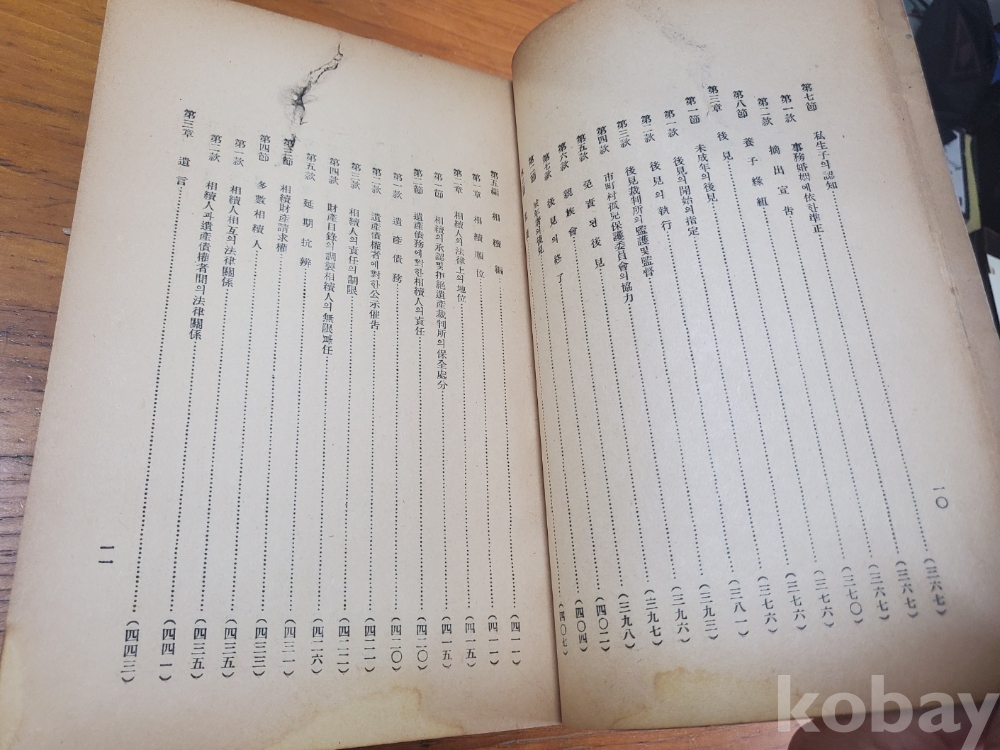 第七節 私生子의認知 (三六七)
第一款 事務婚姻에依한準正 (三六七)
第二款 摘出宣告 (三六七)
第八節 養子緣組 (三七〇)
第三章 後見 (三七六)
第一節 未成年의後見 (三七六)
第一款 後見의開始의指定 (三七六)
第二款 後見의執行 (三八一)
第三款 後見裁判所의監護및監督 (三九三)
第四款 市町村孤兒保護委員會의協力 (三九六)
第五款 免責된後見 (三九七)
第六款 親族會 (三九八)
第七款 後見의終了 (四〇二)
第二節 成年者의後見 (四〇四)
(四〇七)
一〇
第五編 相續編 (四一一)
第一章 相續順位 (四一一)
第二章 相續人의法律上의地位 (四一五)
第一節 相續의承認및拒絕遺產裁判所의保全處分 (四一五)
第二節 遺產債務에對한相續人의責任 (四二〇)
第一款 遺產債務 (四二〇)
第二款 遺產債權者에對한公示催告 (四二一)
第三款 相續人의責任의制限 (四二二)
第四款 財產目錄의調製相續人의無限責任 (四二六)
第五款 延期抗辯 (四三一)
第三節 相續財產請求權 (四三三)
第四節 多數相續人 (四三五)
第一款 相續人相互의法律關係 (四三五)
第二款 相續人과遺產債權者間의法律關係 (四四一)
第三章 遺言 (四四三)
一一
kobay